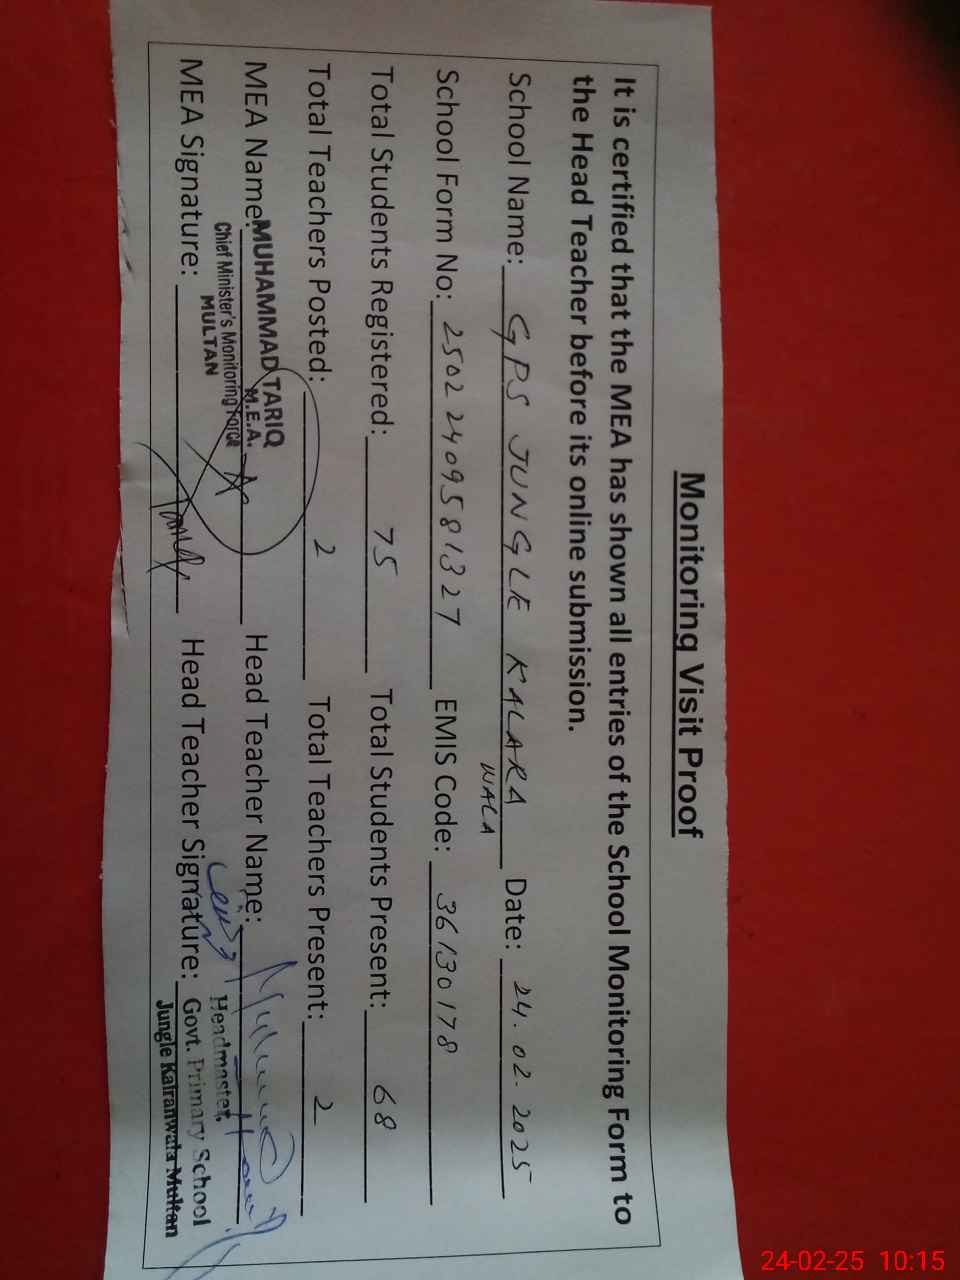 Monitoring Visit Proof
It is certified that the MEA has shown all entries of the School Monitoring Form to
the Head Teacher before its online submission.
School Name: GPS JUNGLE KALARA WALA Date: 24.02.2025
School Form No: 25022409581327 EMIS Code: 36130178
Total Students Registered: 75 Total Students Present: 68
Total Teachers Posted: 2 Total Teachers Present: 2
MEA Name: MUHAMMAD TARIQ Head Teacher Name:
M.E.A.
Chief Minister's Monitoring Force
MULTAN
MEA Signature: Head Teacher Signature:
Headmaster,
Govt. Primary School
Jungle Kalranwala Multan
24-02-25 10:15